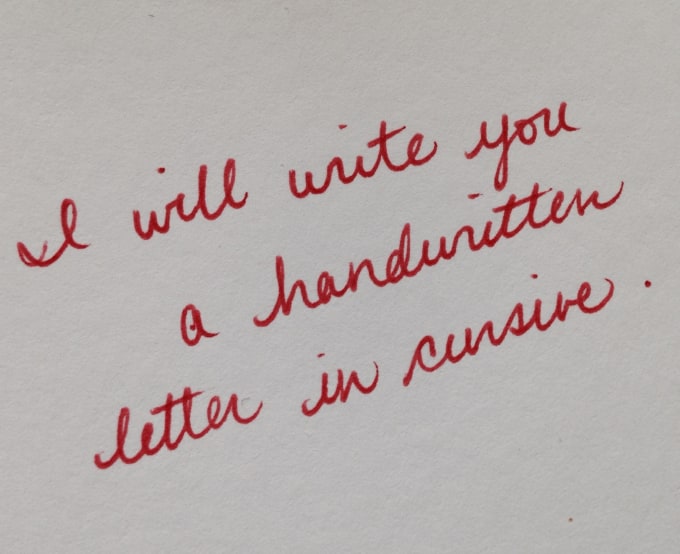 I will write you
a handwritten
letter in cursive.